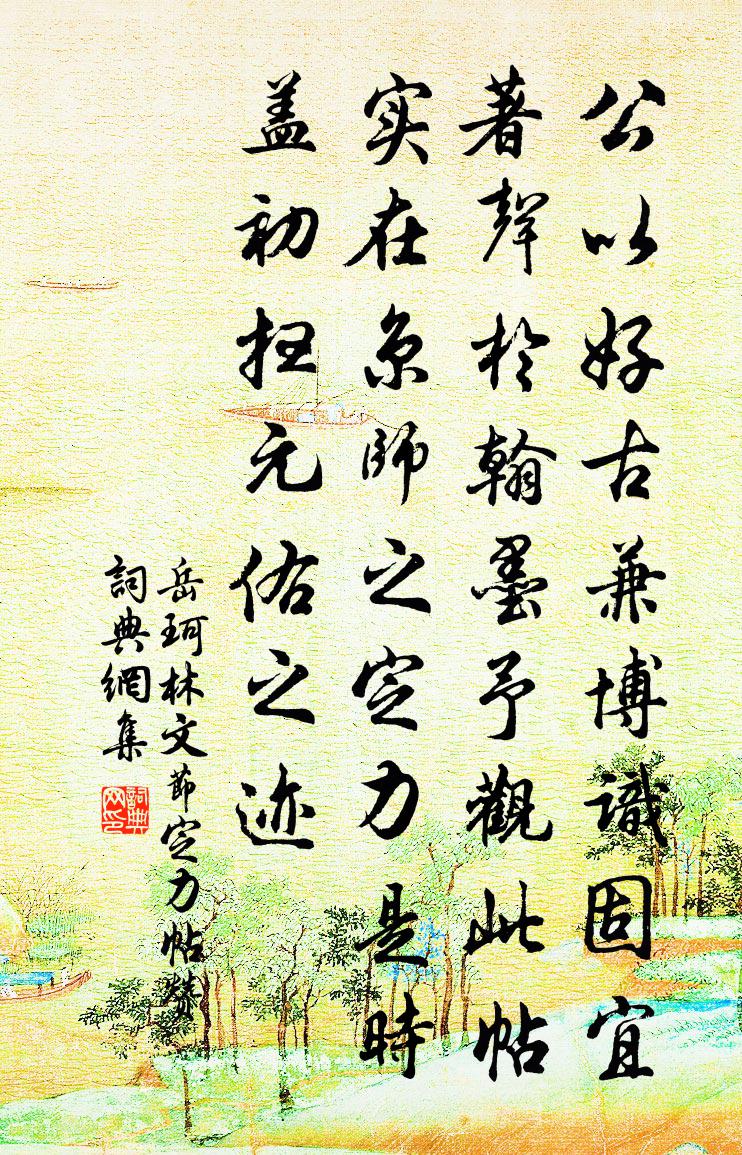 公以好古兼博識固宜
著聲於翰墨予觀此帖
实在京師之定力是時
盖初扫元佑之迹
岳珂林文節定力帖赞
詞典網集
詞典网印